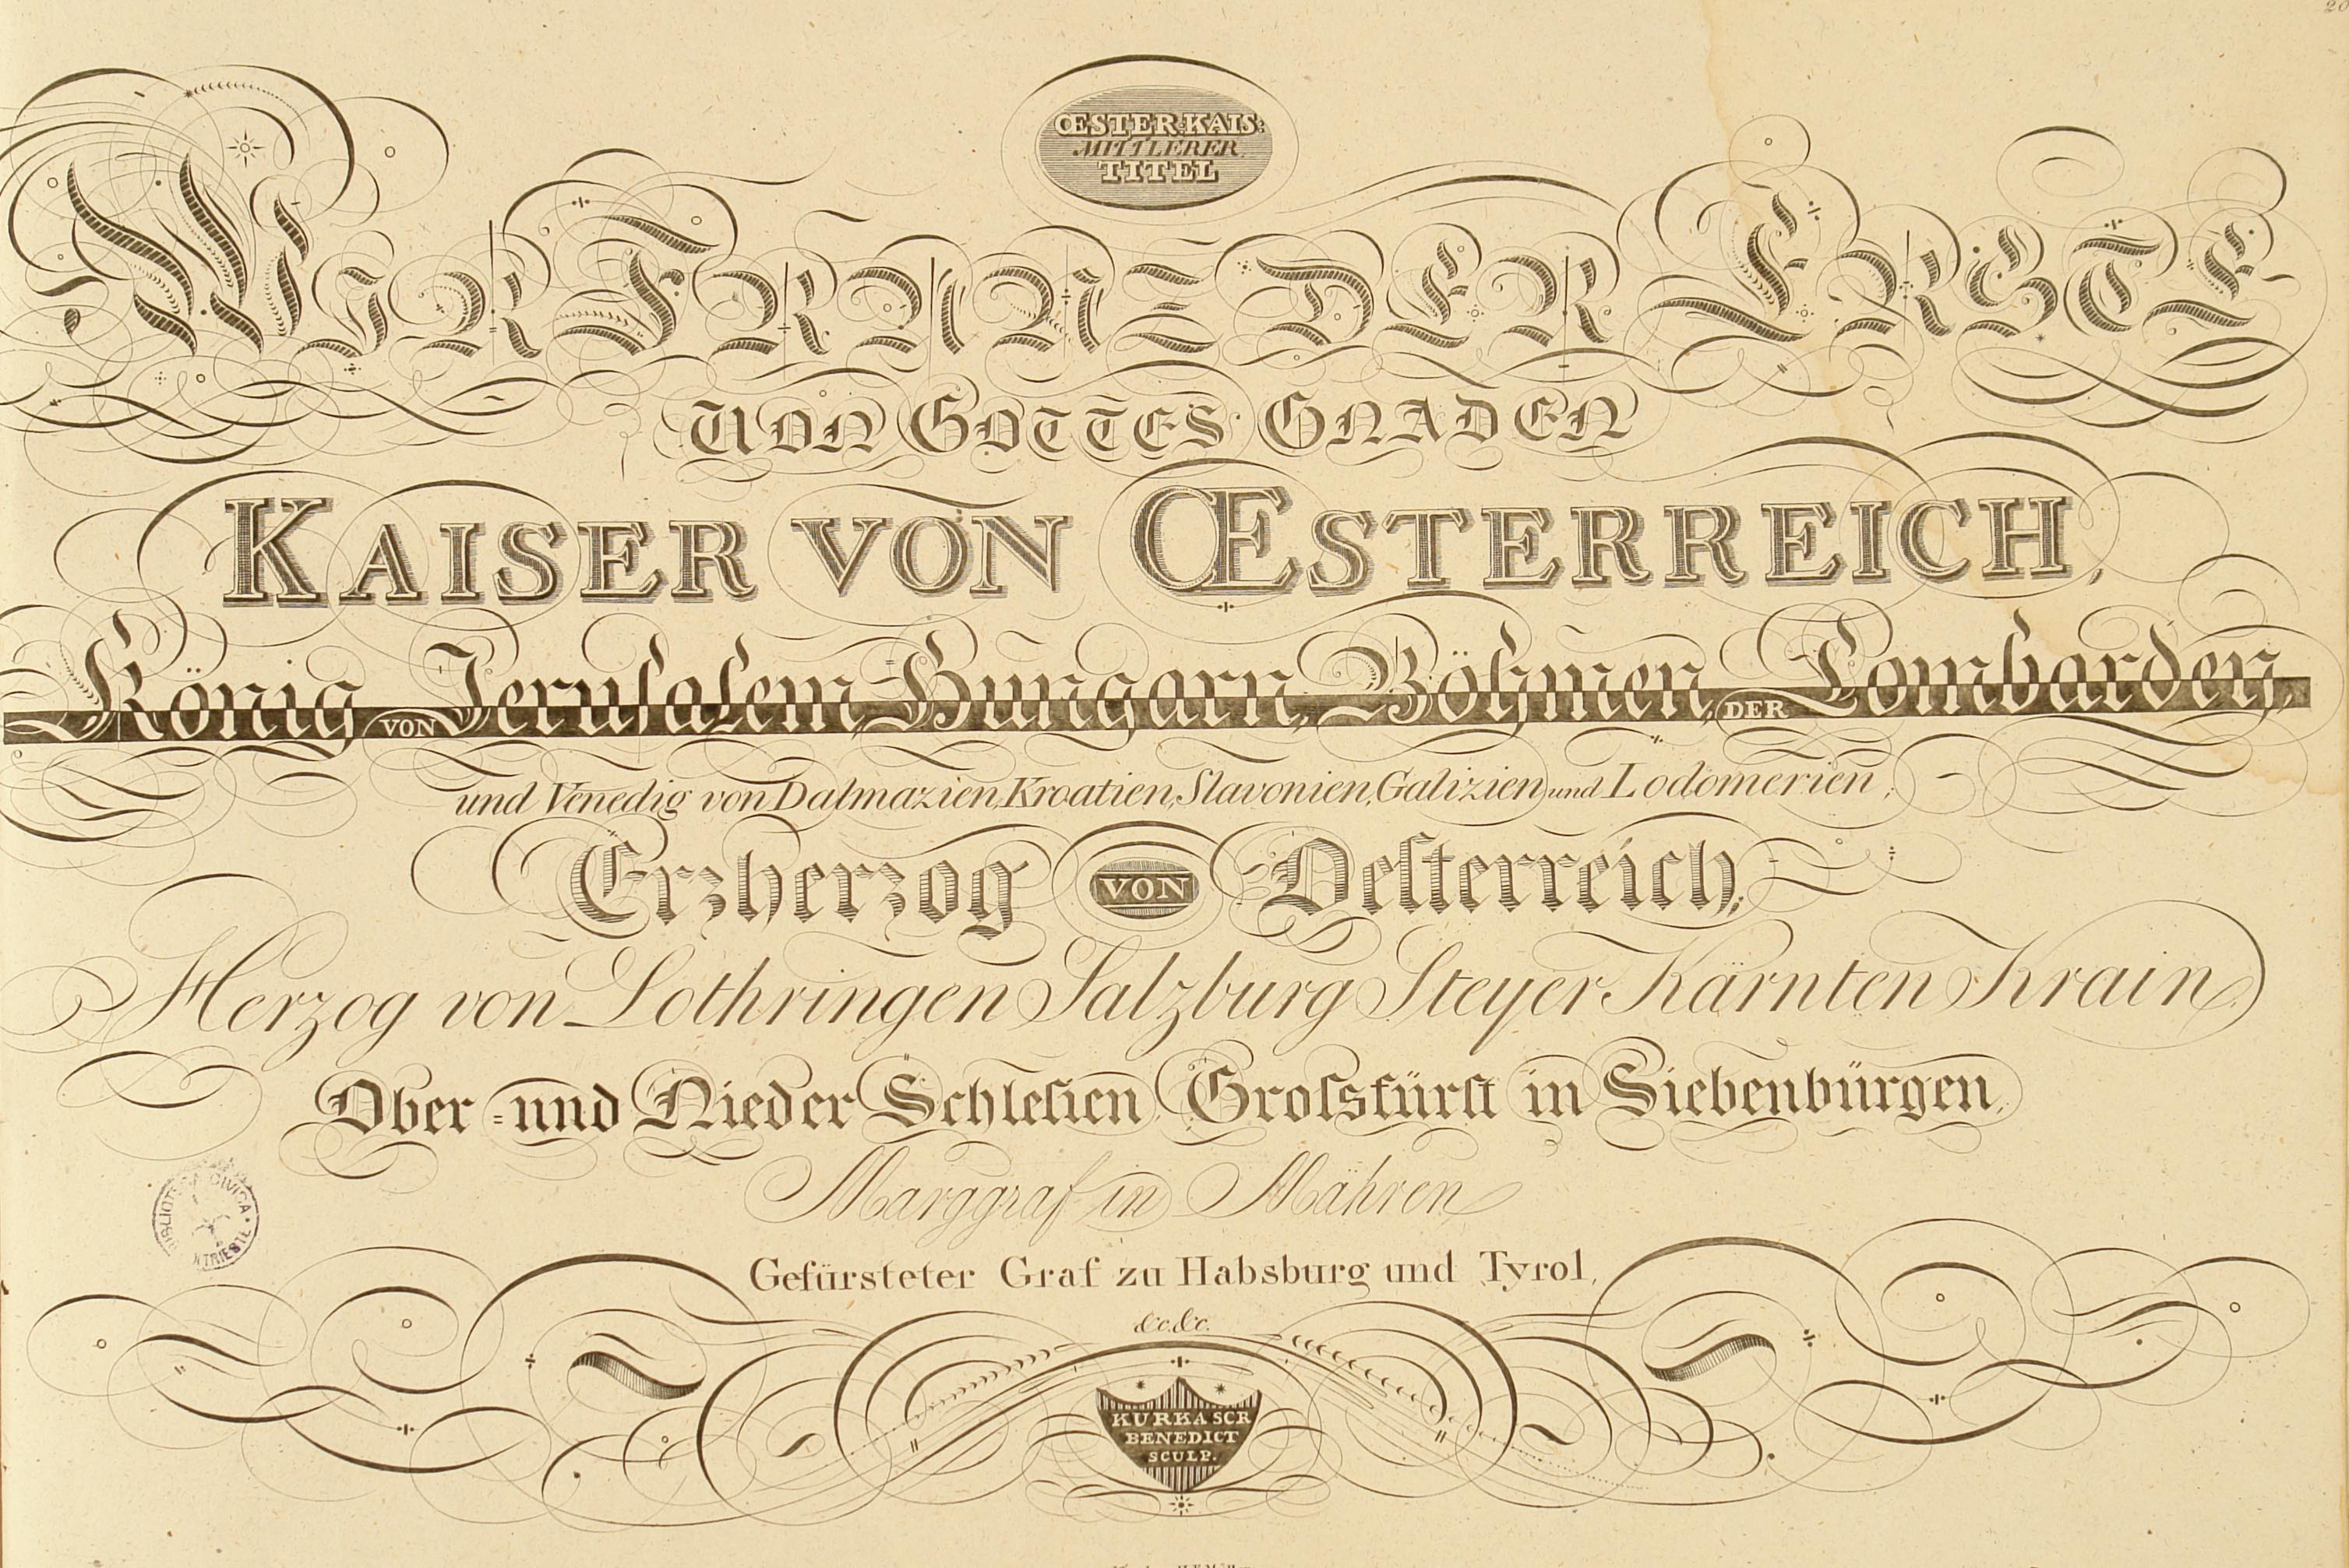 20
ŒSTER: KAIS:
MITTLERER
TITEL
WIR FRANZ DER ERSTE
VON GOTTES GNADEN
KAISER VON ŒSTERREICH,
König VON Jeruſalem, Hungarn, Böhmen, DER Lombarden,
und Venedig von Dalmazien, Kroatien, Slavonien, Galizien und Lodomerien;
Erzherzog VON Oeſterreich;
Herzog von Lothringen Salzburg Steyer Kärnten Krain,
Ober- und Nieder Schleſien, Groſsfürſt in Siebenbürgen,
Marggraf in Mähren
Gefürsteter Graf zu Habsburg und Tyrol,
&c. &c.
KURKA SCR
BENEDICT
SCULP.
BIBLIOTECA CIVICA
TRIESTE